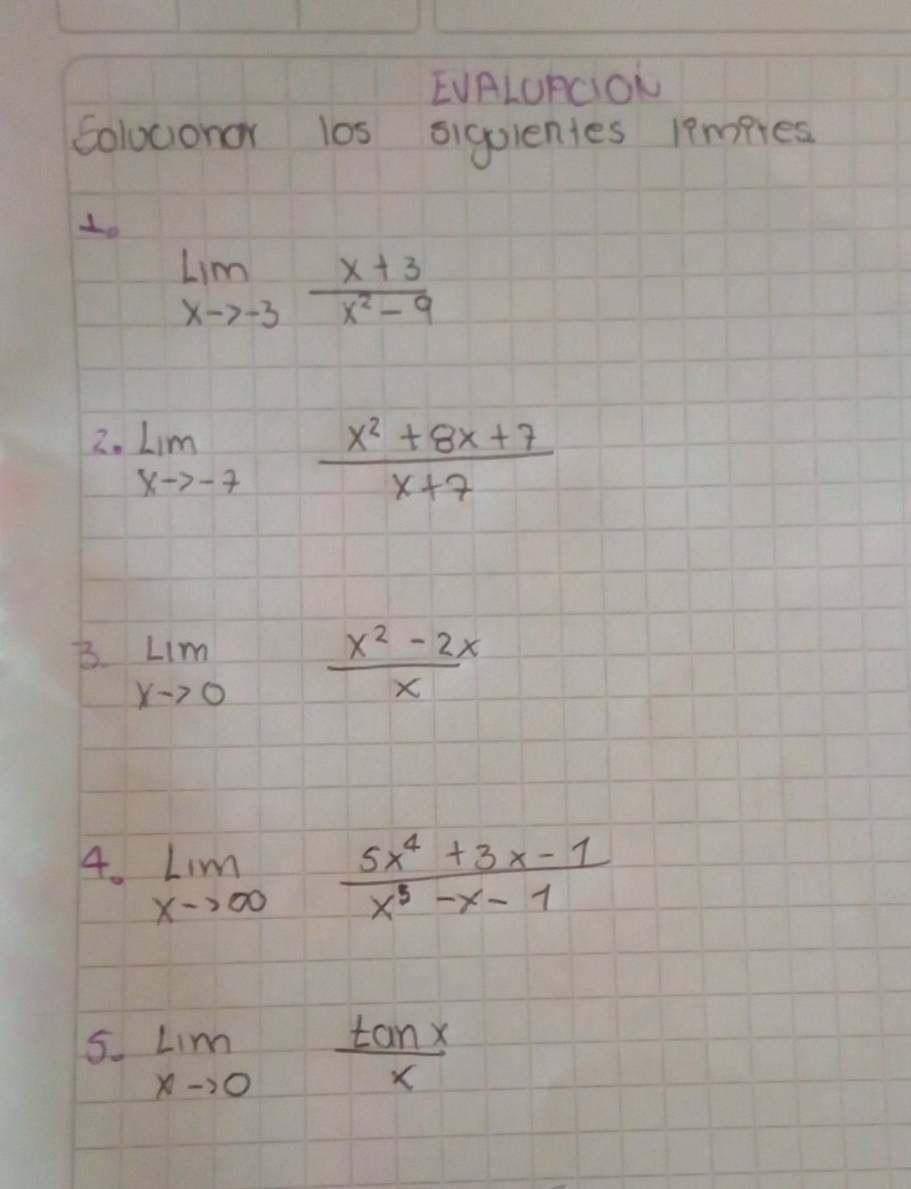 EVALUACION
Solucionar los siguientes limites
1.
Lim x+3
x->-3 x²-9
2. Lim x²+8x+7
x->-7 x+7
3. Lim x²-2x
x->0 x
4. Lim 5x⁴+3x-1
x->∞ x⁵-x-1
5. Lim tan x
x->0 x